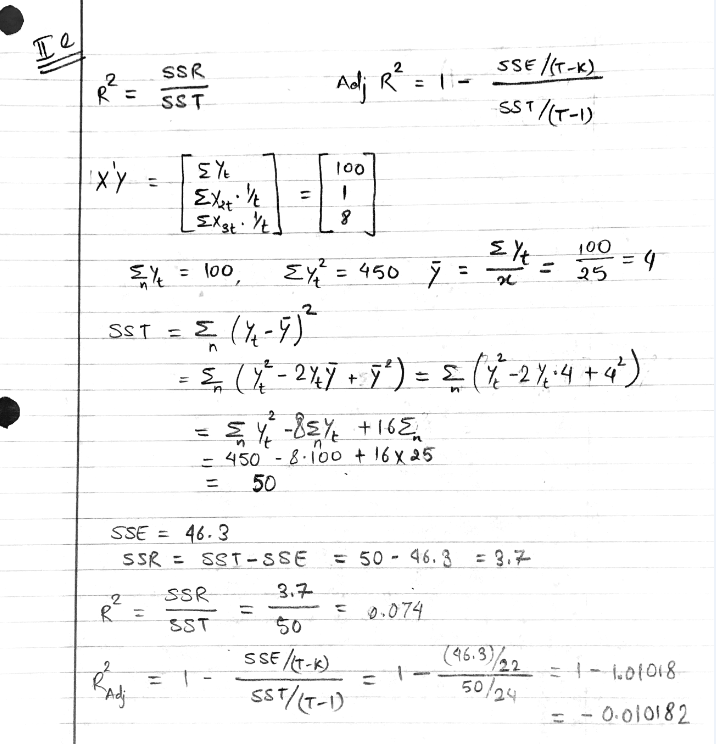 II e
R² = SSR / SST    Adj R² = 1 - SSE/(T-K) / SST/(T-1)
X'Y = [ΣYt ; ΣX2t · Yt ; ΣX3t · Yt] = [100 ; 1 ; 8]
Σn Yt = 100, ΣYt² = 450 ȳ = ΣYt / x = 100 / 25 = 4
SST = Σn (Yt - ȳ)²
= Σn (Yt² - 2Ytȳ + ȳ²) = Σn (Yt² - 2Yt·4 + 4²)
= Σn Yt² - 8Σn Yt + 16Σn
= 450 - 8·100 + 16 x 25
= 50
SSE = 46.3
SSR = SST - SSE = 50 - 46.3 = 3.7
R² = SSR / SST = 3.7 / 50 = 0.074
R²Adj = 1 - SSE/(T-K) / SST/(T-1) = 1 - (46.3)/22 / 50/24 = 1 - 1.01018
= - 0.010182